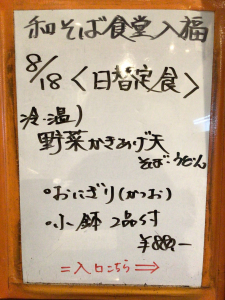 和そば食堂入福
8/18〈日替定食〉
冷・温)
野菜かきあげ天
そば・うどん
・おにぎり(かつお)
・小鉢 2品付
¥880-
=入口こちら⇒